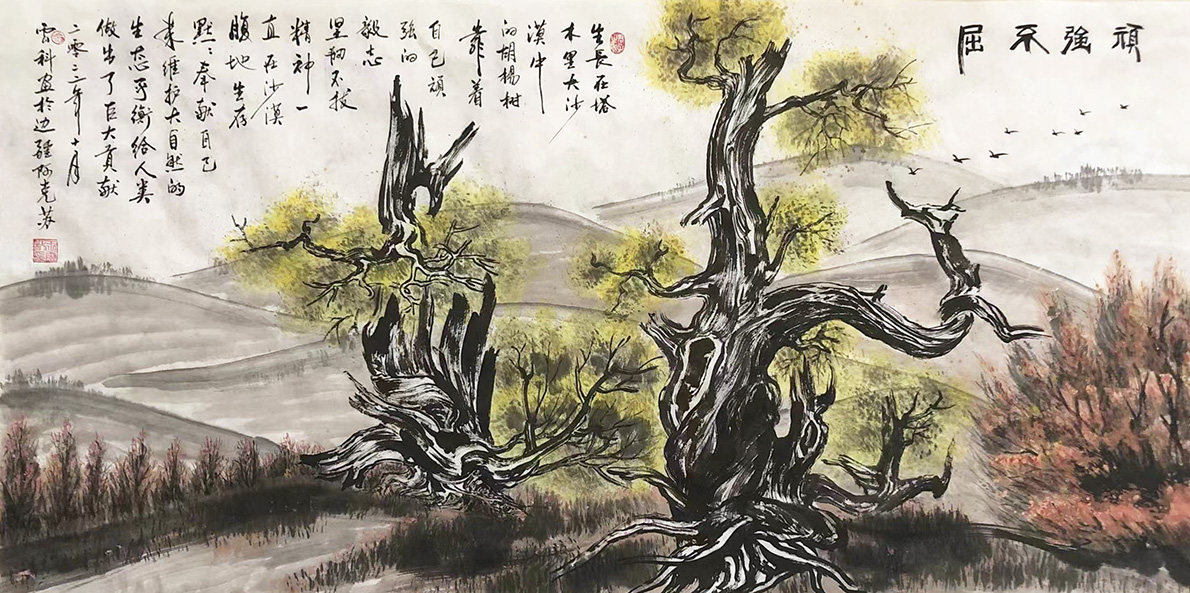 頑強不屈
生長在塔
木里大沙
漠中
的胡楊树
靠着
自己頑
强的
毅志
坚韧不拔
精神一
直在沙漠
腹地生存
默〻奉献自己
来维护大自然的
生态平衡给人类
做出了巨大貢献
二零二三年十月
雲科画於边疆阿克苏